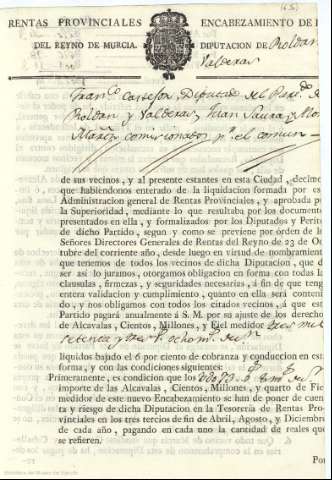 RENTAS PROVINCIALES
ENCABEZAMIENTO DE
DEL REYNO DE MURCIA.
DIPUTACION DE Roldan
Valderas
Diputado del
Roldan y Valderas, Juan
comisionados pr el comun
de sus vecinos, y al presente estantes en esta Ciudad, decimos
que habiendonos enterado de la liquidacion formada por es
Administracion general de Rentas Provinciales, y aprobada p
la Superioridad, mediante lo que resultaba por los document
presentados en ella, y formalizados por los Diputados y Perito
de dicho Partido, segun y como se previene por órden de l
Señores Directores Generales de Rentas del Reyno de 23 de Oc
tubre del corriente año, desde luego en virtud de nombramient
que tenemos de todos los vecinos de dicha Diputacion, que d
ser así lo juramos, otorgamos obligacion en forma con todas la
clausulas, firmezas, y seguridades necesarias, á fin de que teng
entera validacion y cumplimiento, quanto en ella será conteni
do, y nos obligamos con todos los estados vecinos, á que est
Partido pagará anualmente á S. M. por su ajuste de los derecho
de Alcavalas, Cientos, Millones, y Fiel medidor tres mil
setenta y
liquidos bajado el 6 por ciento de cobranza y conduccion en est
forma, y con las condiciones siguientes:
Primeramente, es condicion que los
importe de las Alcavalas, Cientos, Millones, y quarto de Fie
medidor de este nuevo Encabezamiento se han de poner de cuen
ta y riesgo de dicha Diputacion en la Tesorería de Rentas Pro
vinciales en los tres tercios de fin de Abril, Agosto, y Diciembre
de cada año, pagando en cada uno la cantidad de reales que
se refieren.
Por